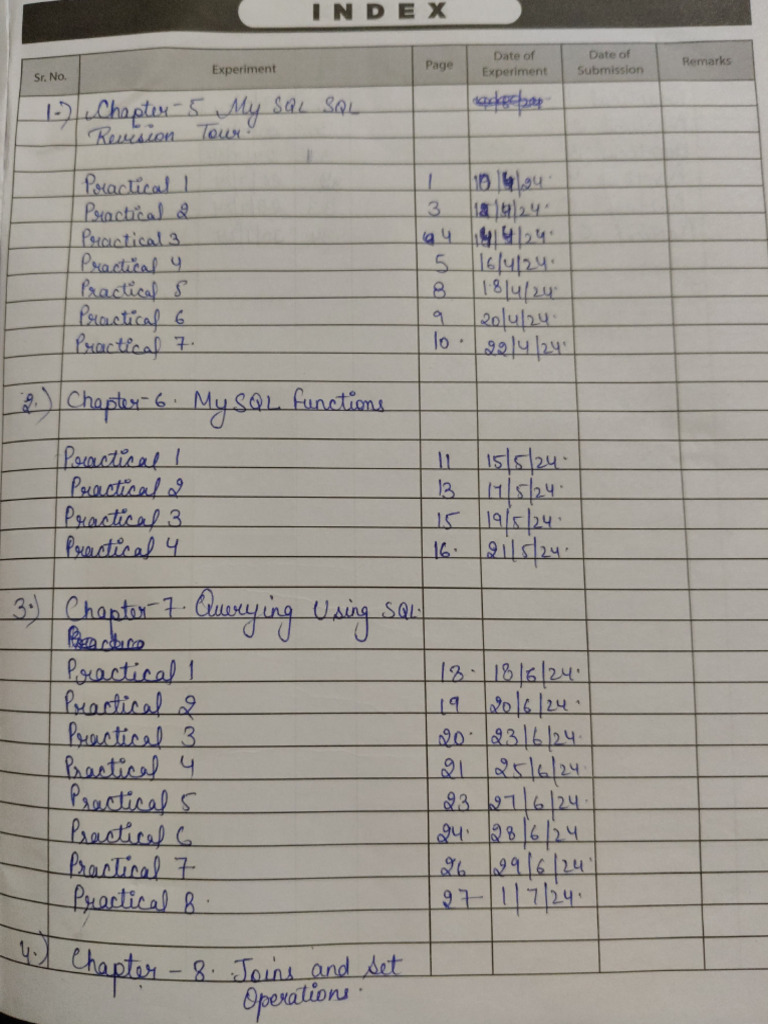 INDEX
Sr. No. Experiment Page Date of Experiment Date of Submission Remarks
1.) Chapter-5 My SQL SQL
Revision Tour.
Practical 1 1 10/4/24.
Practical 2 3 12/4/24.
Practical 3 4 14/4/24.
Practical 4 5 16/4/24.
Practical 5 8 18/4/24.
Practical 6 9 20/4/24.
Practical 7. 10. 22/4/24.
2.) Chapter-6. My SQL functions
Practical 1 11 15/5/24.
Practical 2 13 17/5/24.
Practical 3 15 19/5/24.
Practical 4 16. 21/5/24.
3.) Chapter-7. Querying Using SQL.
Practical 1 18. 18/6/24.
Practical 2 19 20/6/24.
Practical 3 20. 23/6/24.
Practical 4 21 25/6/24.
Practical 5 23 27/6/24.
Practical 6 24. 28/6/24
Practical 7 26 29/6/24.
Practical 8. 27 1/7/24.
4.) Chapter - 8. Joins and Set
Operations.